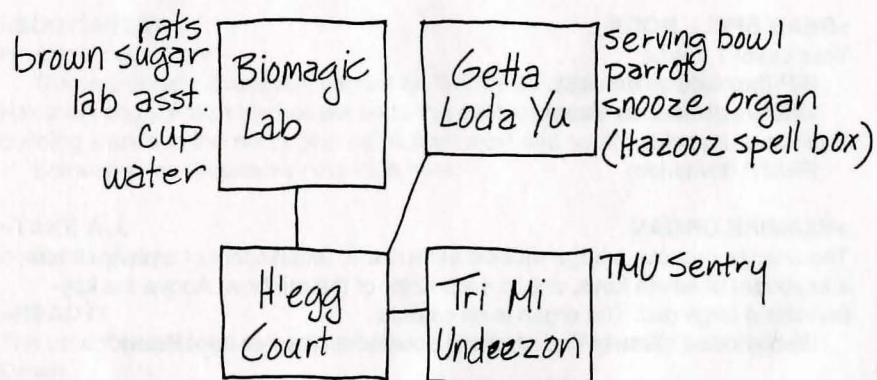 oats
brown sugar
lab asst
cup
water
Biomagic
Lab
Getta
Loda Yu
serving bowl
parrot
snooze organ
(Hazooz spell box)
H'egg
Court
Tri Mi
Undeezon
TMU Sentry